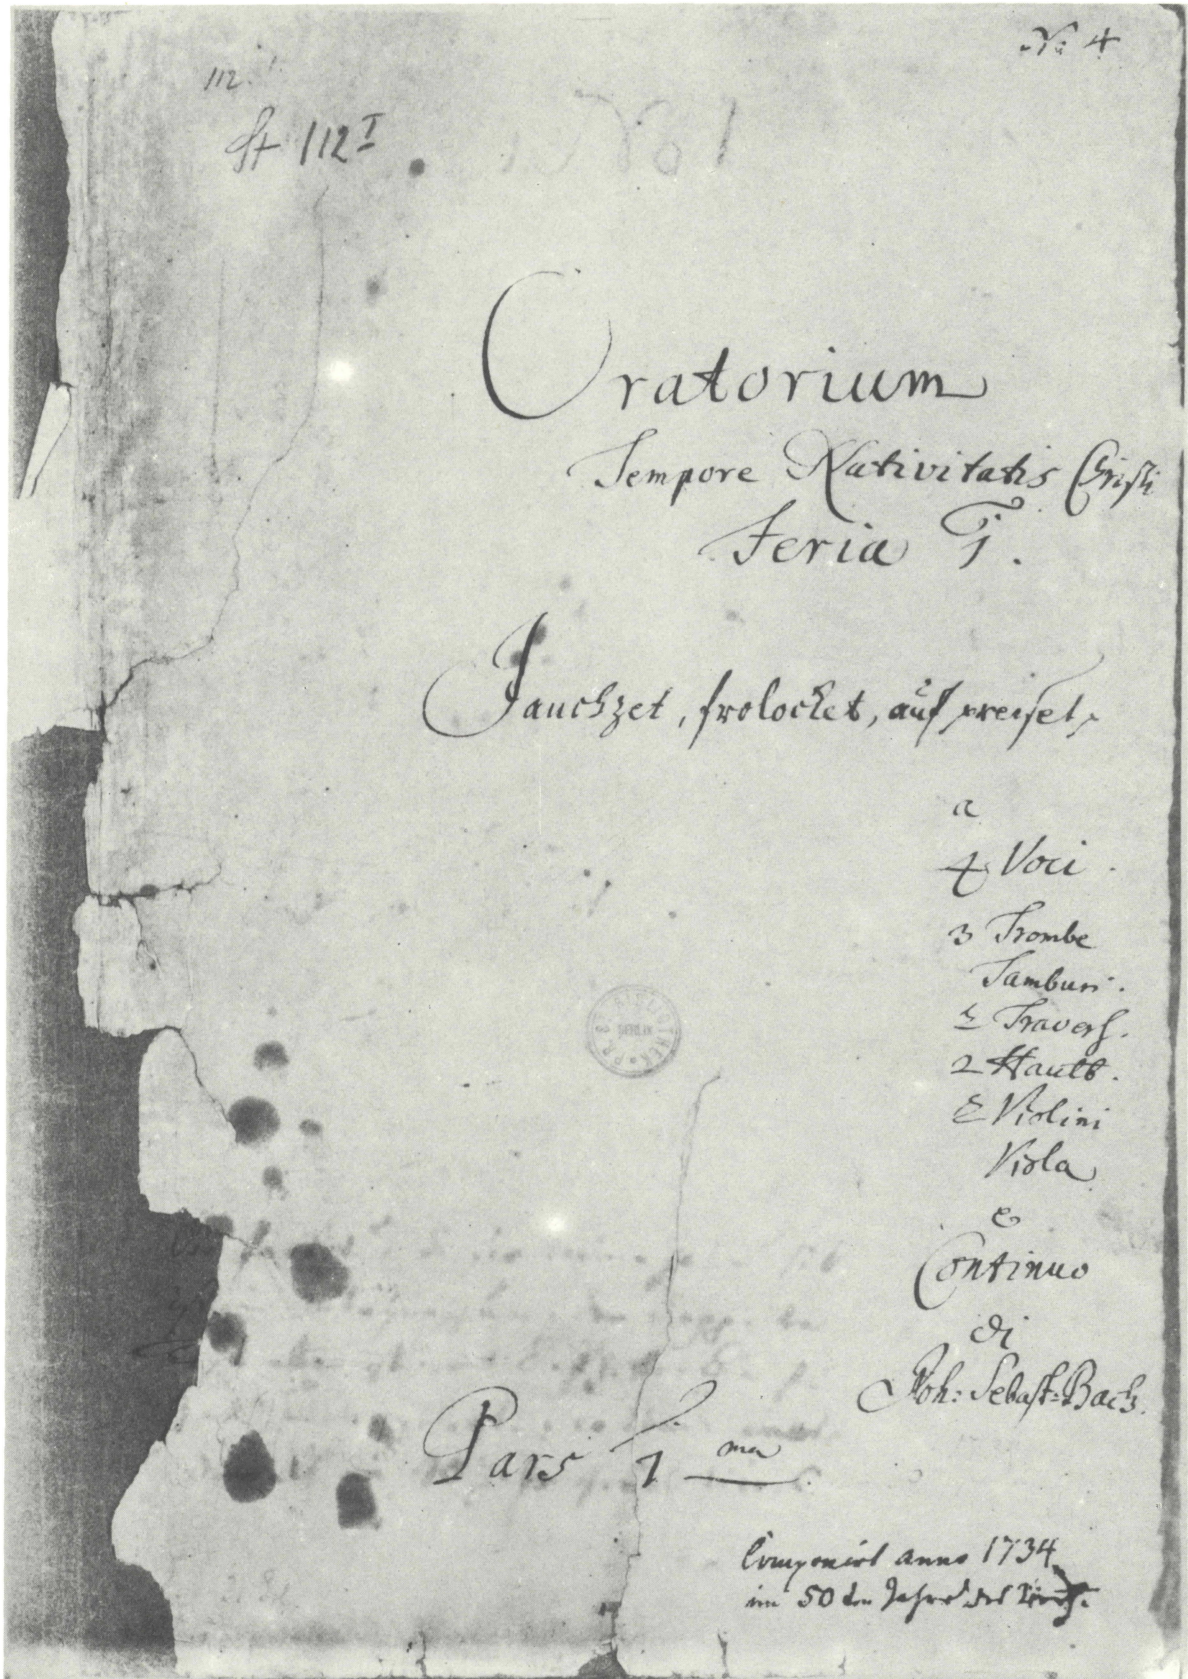 No 4
112.
St 112 I
Oratorium
Tempore Nativitatis Christi
Feria 1.
Jauchzet, frolocket, auf preiset,
a
4 Voci.
3 Trombe
Tamburi.
2 Travers.
2 Hautb.
2 Violini
Viola
e
Continuo
di
Joh: Sebast: Bach.
Pars 1 ma
BERLIN
Componirt anno 1734
im 50 ten Jahre des